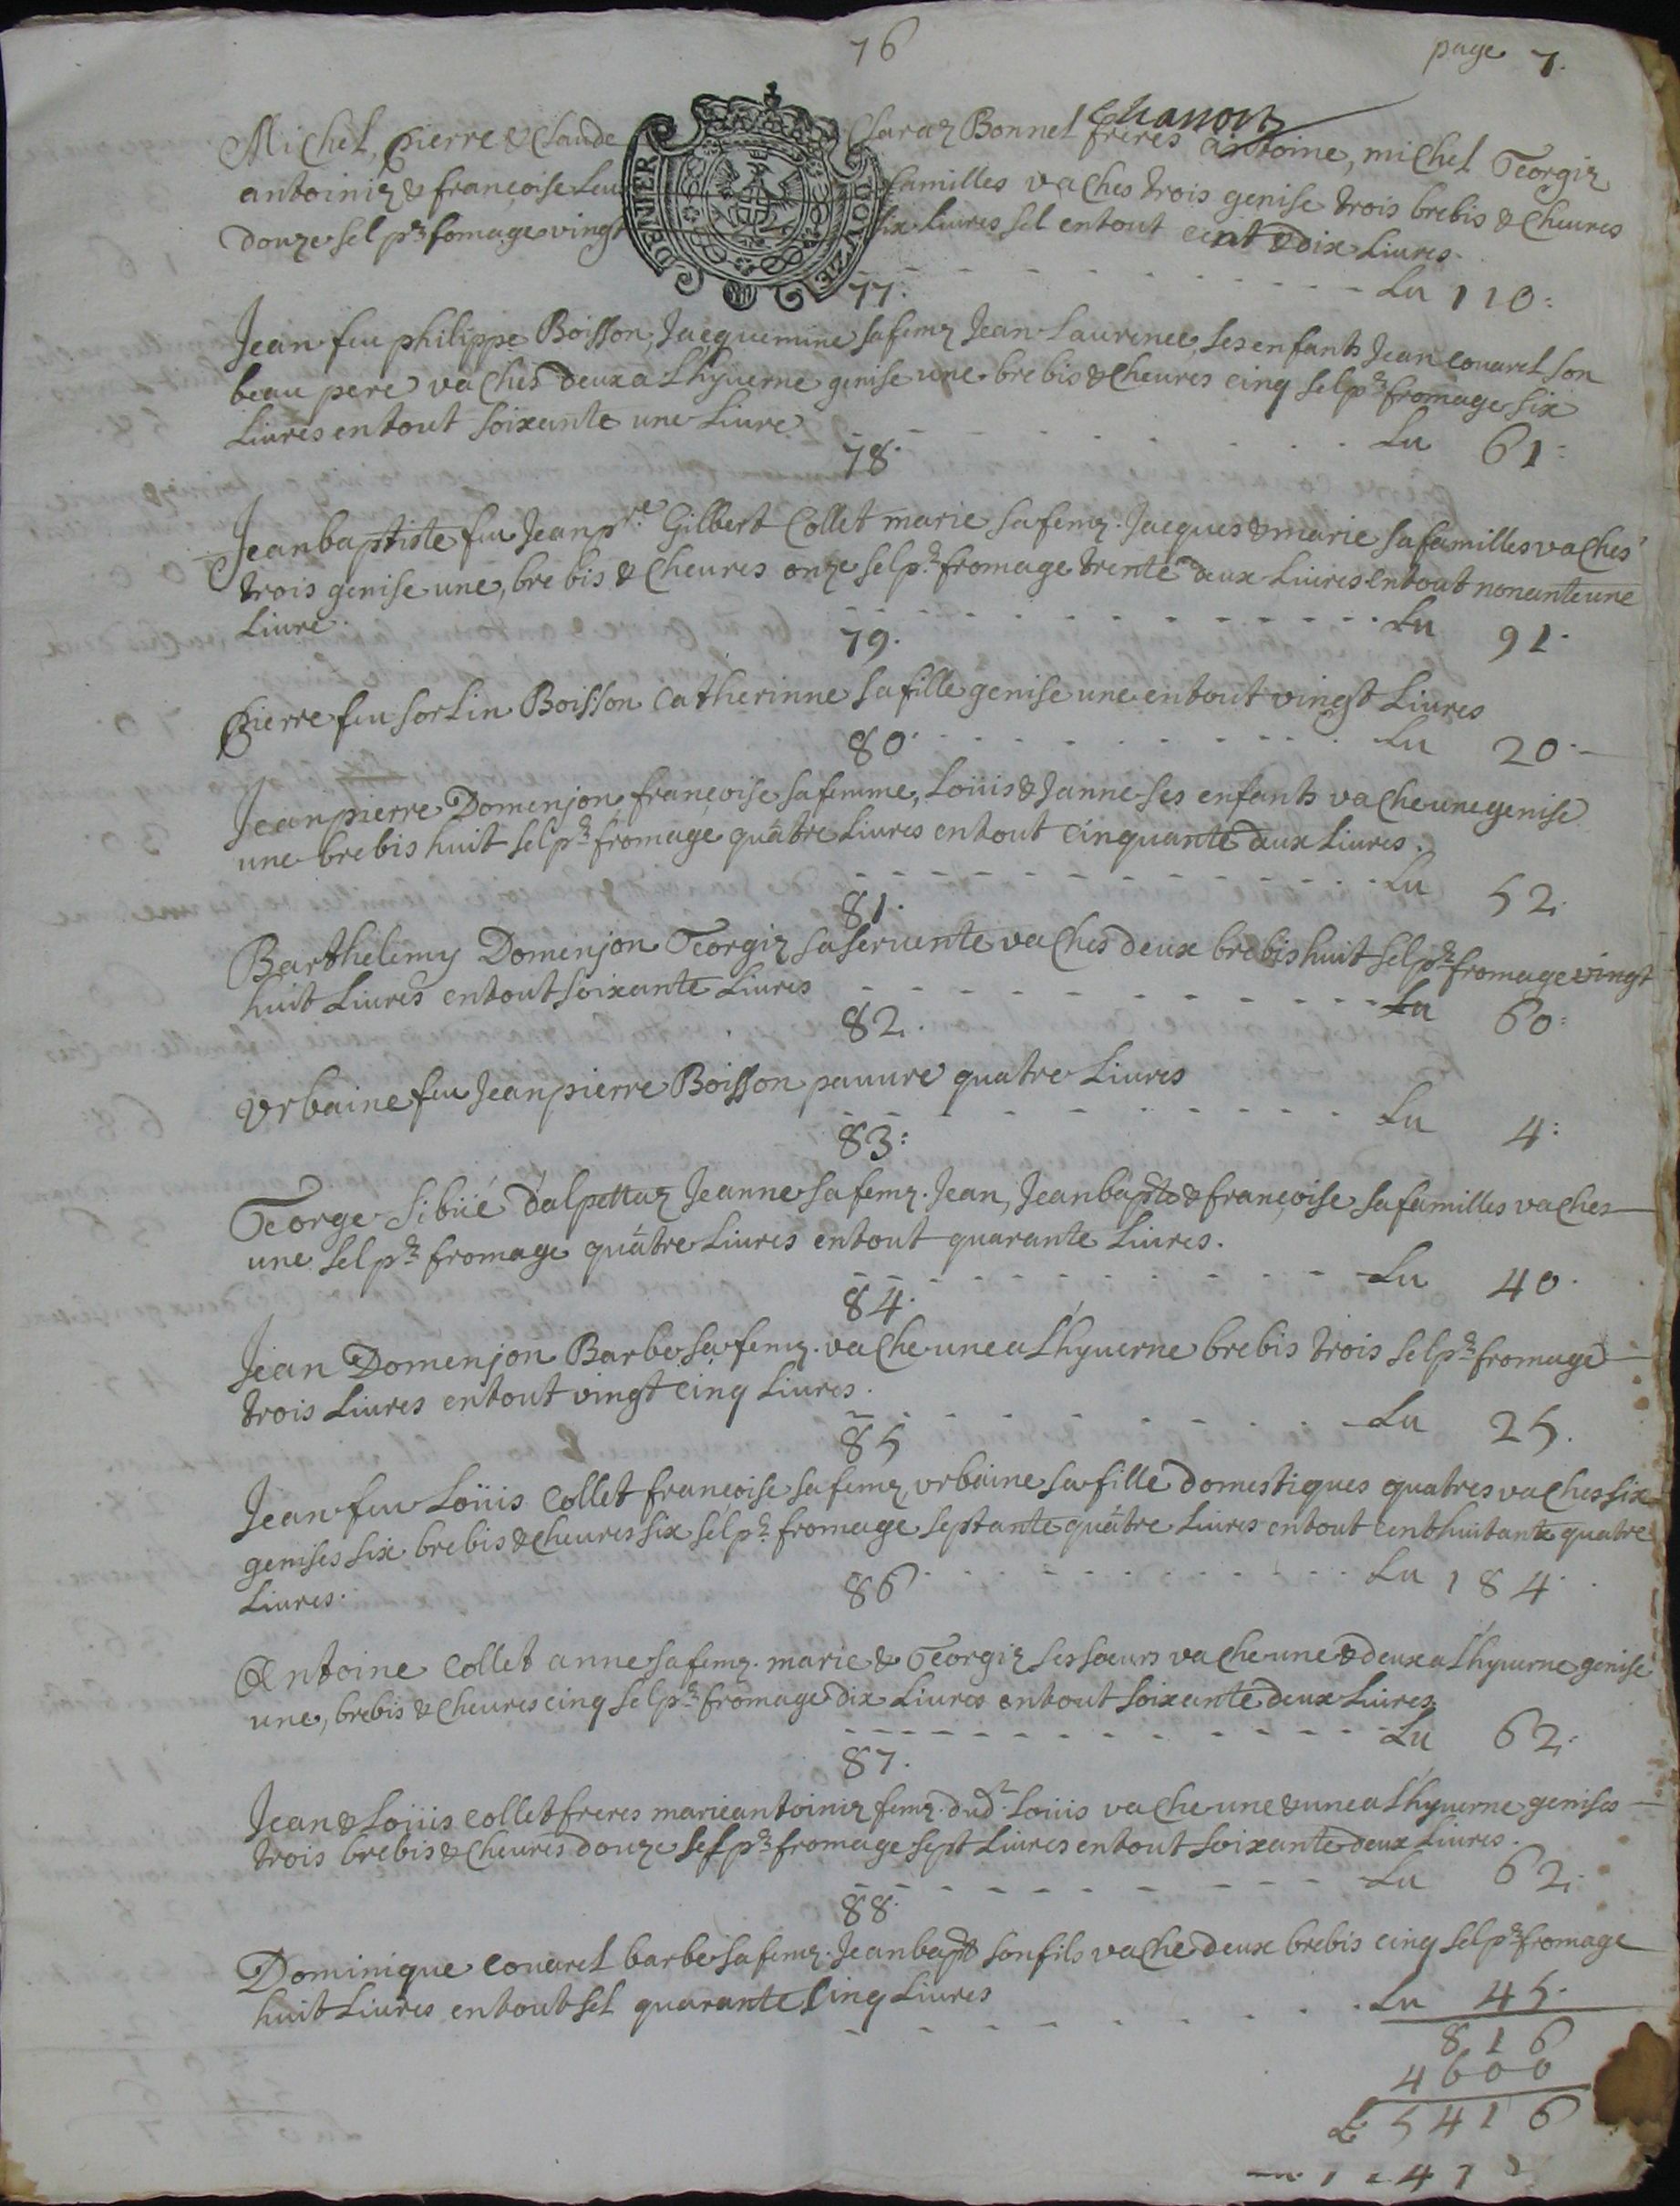 76
page 7.
Chanor
Michel, Pierre & Claude Claraz Bonnel freres antoine, michel Georgiz
antoiniz & françoise Leu familles vaches trois genise trois brebis & cheures
douze sel pr fomage vingt six Liures sel entout cent & dix Liures.
DENIER DOVZE
Lu 110:
77.
Jean feu philippe Boisson, Jacquemine safemz Jean Laurence, ses enfants Jean couarel son
beau pere vaches deux a Lhyuerne genise une brebis & cheures cinq sel pr fromage six
Liures entout soixante une Liure
Lu 61:
78.
Jeanbaptiste feu Jean pre Gilbert Collet marie safemz. Jacques & marie safamilles vaches
trois genise une, brebis & cheures onze sel pr fromage trente deux Liures entout nonante une
Liure.
Lu 91.
79.
Pierre feu sorlin Boisson Catherinne safille genise une entout vingt Liures
Lu 20.
80.
Jeanpierre Domenjon françoise safemme, Loüis & Janne ses enfants vache une genise
une brebis huit sel pr fromage quatre Liures entout cinquante deux Liures.
Lu 52.
81.
Barthelemy Domenjon Georgiz saseruente vaches deux brebis huit sel pr fromage vingt
huit Liures entout soixante Liures
Lu 60:
82.
Vrbaine feu Jeanpierre Boisson pauure quatre Liures
Lu 4:
83:
George Sibüé dalpettaz Jeanne safemz. Jean, Jeanbapte & françoise safamilles vaches
une sel pr fromage quatre Liures entout quarante Liures.
Lu 40.
84.
Jean Domenjon Barbe safemz. vache une a Lhyuerne brebis trois sel pr fromage
trois Liures entout vingt cinq Liures.
Lu 25.
85
Jean feu Loüis Collet françoise safemz vrbaine safille domestiques quatres vaches six
genises six brebis & cheures six sel pr fromage septante quatre Liures entout cent huitante quatre
Liures.
Lu 184.
86
Antoine Collet anne safemz. marie & Georgiz ses sœurs vache une & deux a Lhyuerne genise
une, brebis & cheures cinq sel pr fromage dix Liures entout soixante deux Liures
Lu 62.
87.
Jean & Loüis Collet freres marie antoiniz femz. dud. Loüis vache une & une a Lhyuerne genises
trois brebis & cheures douze sel pr fromage sept Liures entout soixante deux Liures.
Lu 62.
88.
Dominique Couarel barbe safemz. Jeanbapt sonfils vache deux brebis cinq sel pr fromage
huit Liures entout sel quarante Cinq Liures
Lu 45.
816
4600
L 5416